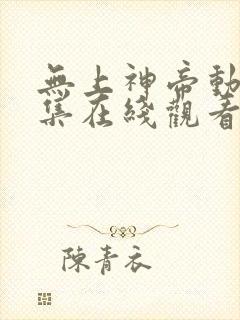 無上神帝動
集在綫觀看
陳青衣